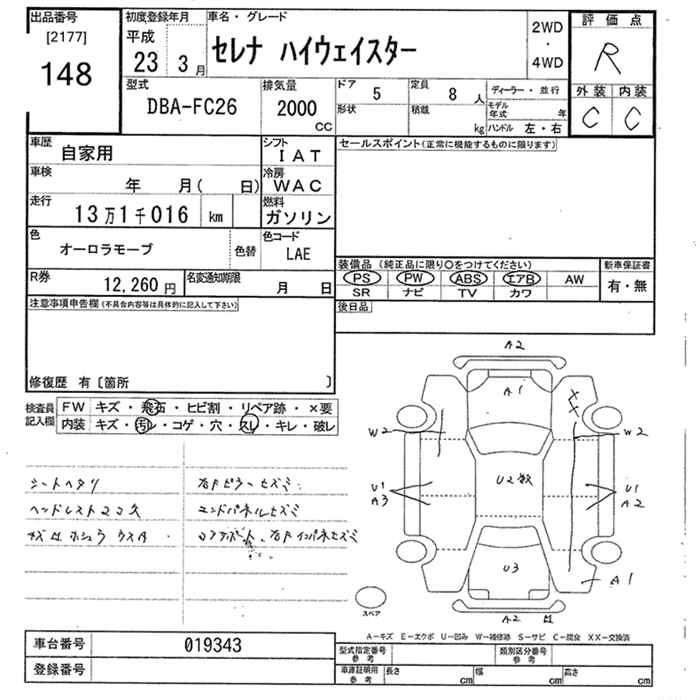 出品番号
[2177]
148
初度登録年月
平成
23 3月
車名・グレード
セレナ ハイウェイスター
2WD
・
4WD
評価点
R
外装 内装
C C
型式
DBA-FC26
排気量
2000
cc
ドア 5
形状
定員 8 人
積載 kg
ディーラー・並行
モデル年式 年
ハンドル 左・右
車歴
自家用
シフト
IAT
車検
年 月( 日)
冷房
WAC
走行
13万1千016 km
燃料
ガソリン
色
オーロラモーブ
色替
色コード
LAE
R券
12,260円
名変通知期限
月 日
セールスポイント(正常に機能するものに限ります)
装備品(純正品に限り○をつけてください)
PS PW ABS エアB AW
SR ナビ TV カワ
新車保証書
有・無
後日品
注意事項申告欄(不具合内容等は具体的に記入して下さい)
修復歴 有〔箇所 〕
検査員記入欄
FW キズ・飛石・ヒビ割・リペア跡・×要
内装 キズ・汚レ・コゲ・穴・スレ・キレ・破レ
シートヘタリ
右Fピラーヒズミ
エンドパネルヒズミ
A2
A1
W2
W2
U1
A3
U2数
U1
A2
U3
A1
A2 凹
スペア
A-キズ E-エクボ U-凹み W-補修跡 S-サビ C-腐食 XX-交換済
車台番号
019343
登録番号
型式指定番号
参考
類別区分番号
参考
車庫証明用
参考
長さ cm
幅 cm
高さ cm